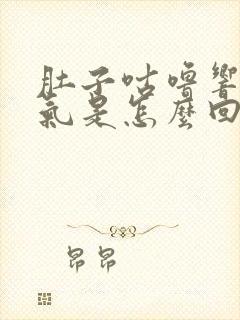 肚子咕嚕響
氣是怎麼回
昂昂